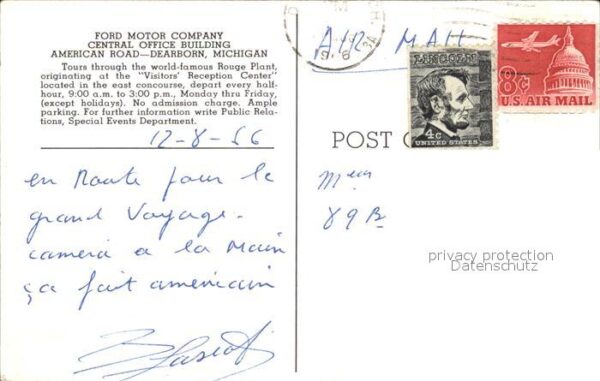 FORD MOTOR COMPANY
CENTRAL OFFICE BUILDING
AMERICAN ROAD—DEARBORN, MICHIGAN
Tours through the world-famous Rouge Plant,
originating at the "Visitors' Reception Center"
located in the east concourse, depart every half-
hour, 9:00 a.m. to 3:00 p.m., Monday thru Friday,
(except holidays). No admission charge. Ample
parking. For further information write Public Re-
lations, Special Events Department.
12-8-66
en Route pour le
grand Voyage.
camera a la main
ça fait americain
AIR MAIL
LINCOLN
4c
UNITED STATES
8c
U.S. AIR MAIL
POST C
89 B
privacy protection
Datenschutz